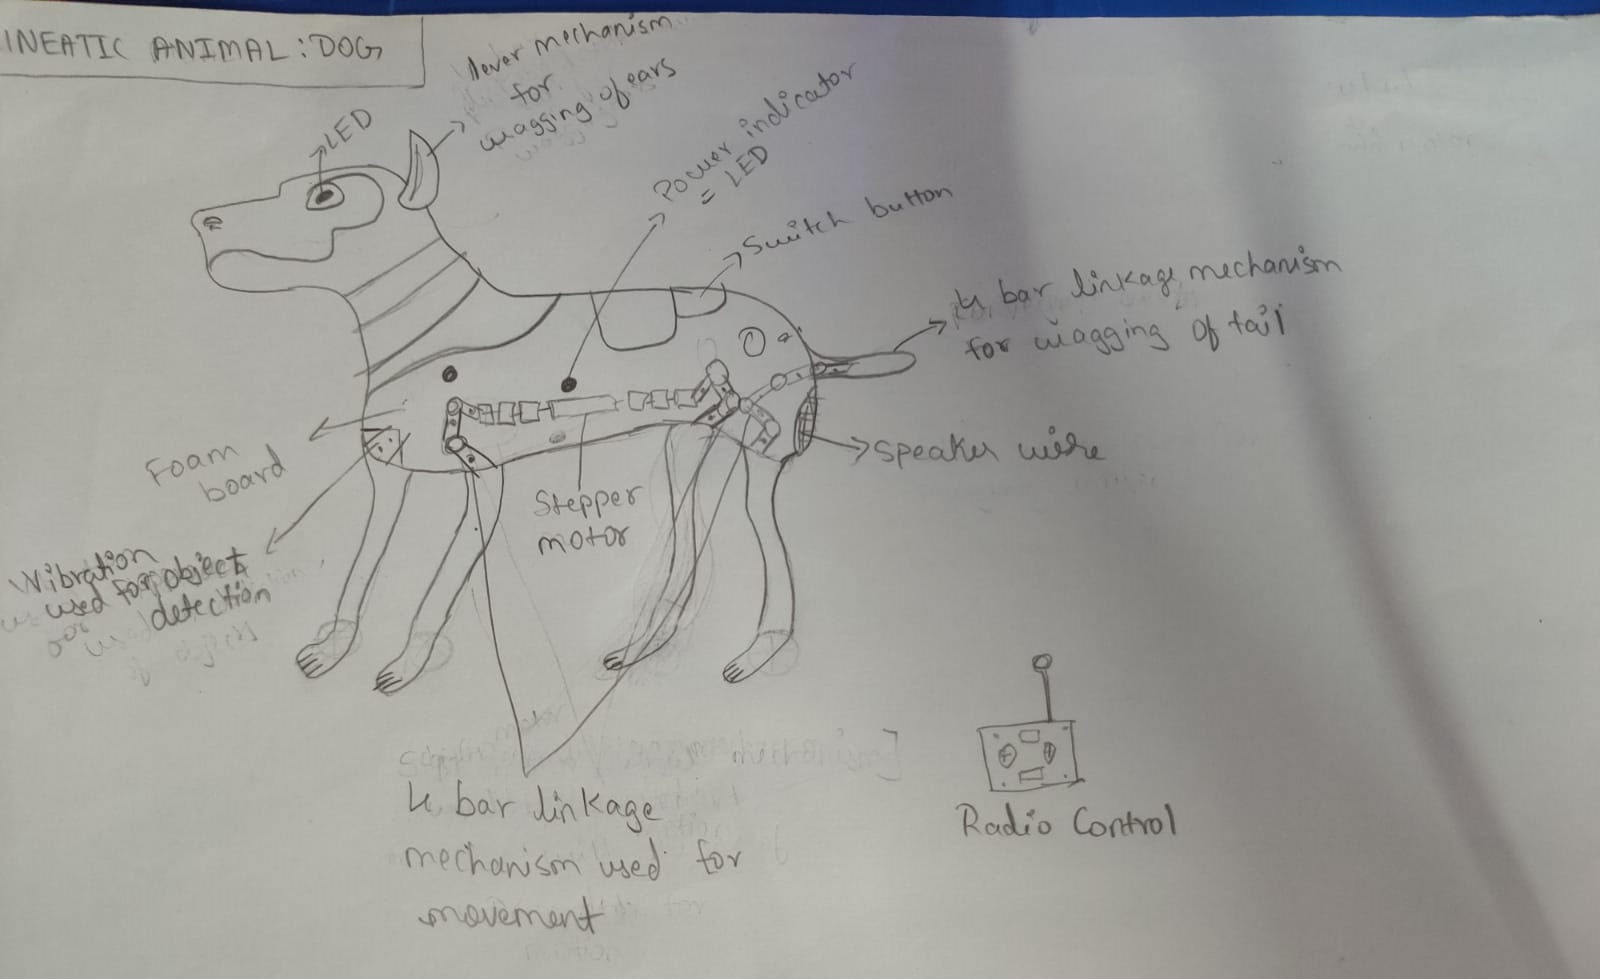 INEATIC ANIMAL: DOG
lever mechanism
for
wagging of ears
LED
Power indicator
= LED
Switch button
4 bar linkage mechanism
for wagging of tail
speaker wire
Foam
board
Stepper
motor
Vibration
used for object
detection
4 bar linkage
mechanism used for
movement
Radio Control